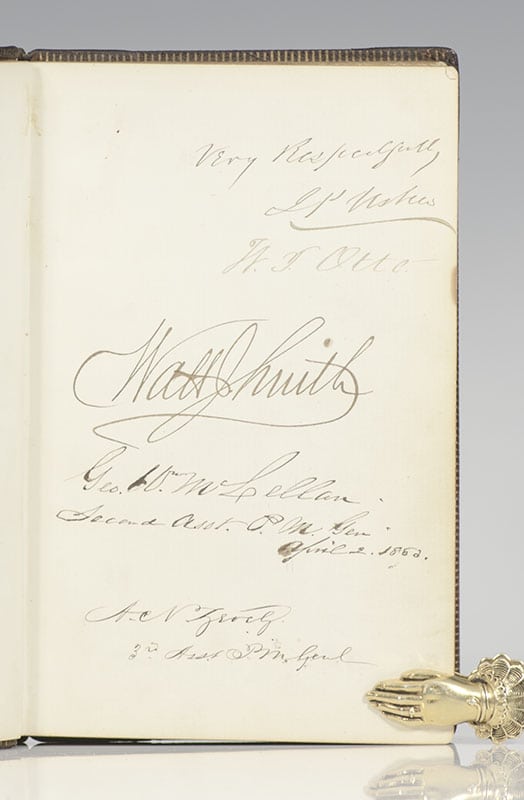 Very Respectfully
J P Usher
W. T. Otto.
Watt J. Smith
Geo. Wm McLellan.
Second Asst. P. M. Gen
April 2. 1863.
A. N. Zevely.
3rd Asst P. M. Genl